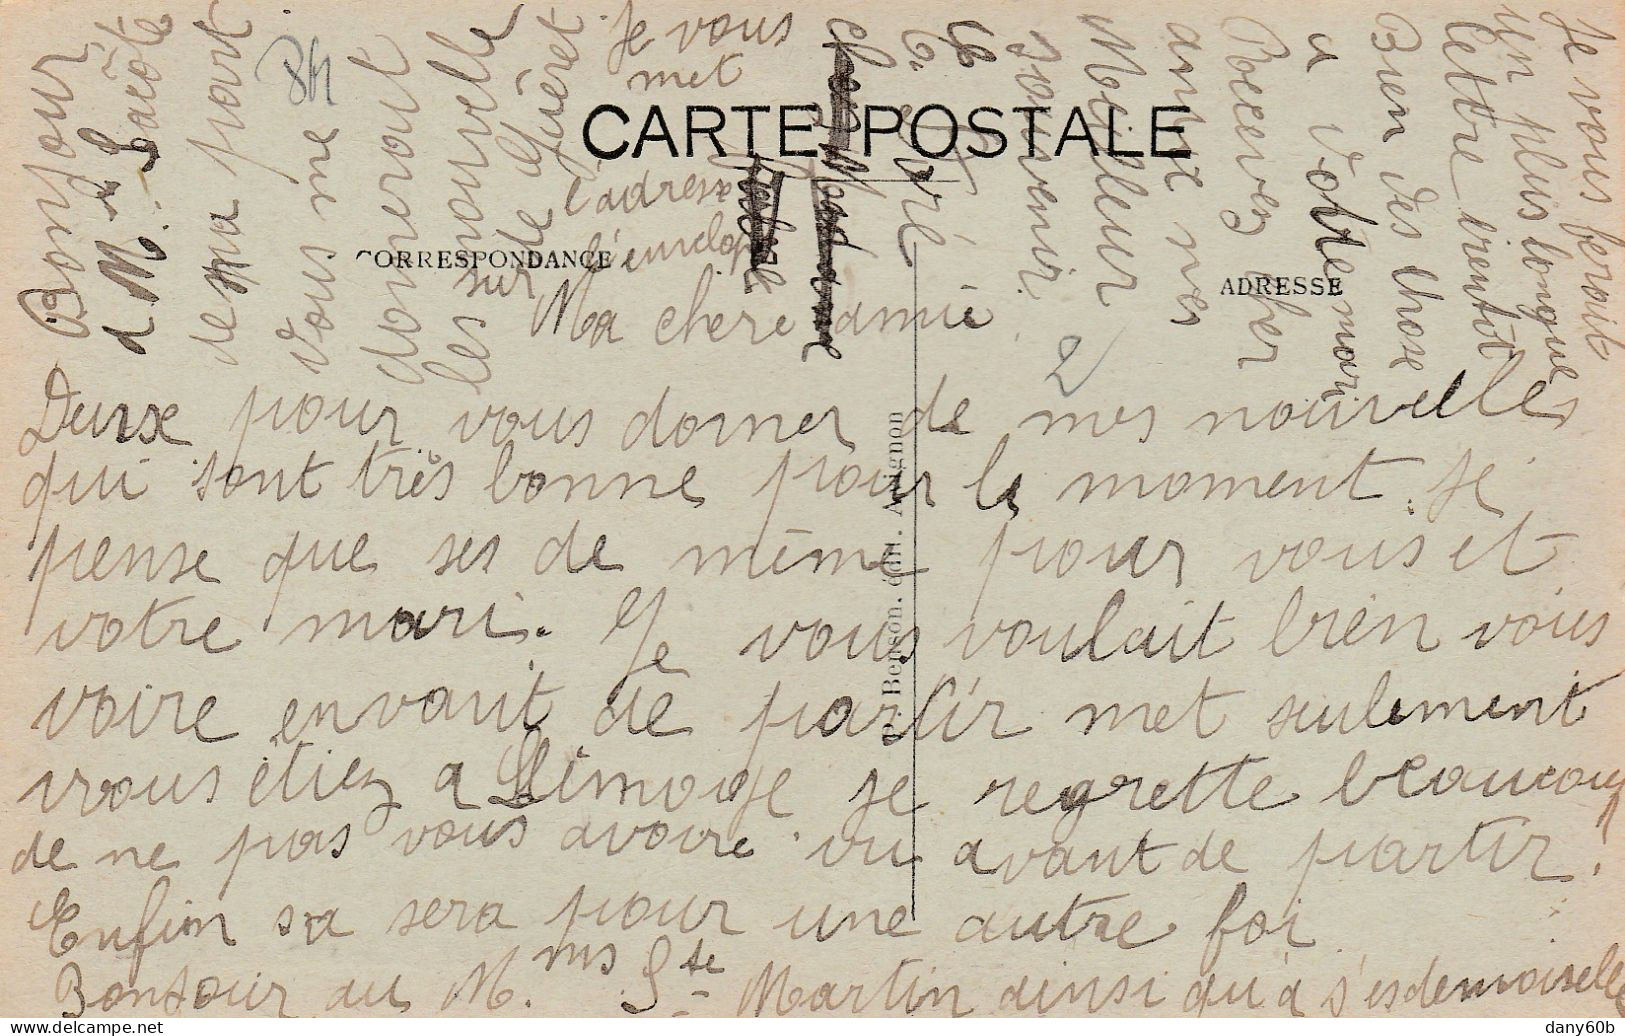 CARTE POSTALE
CORRESPONDANCE
ADRESSE
Benson. édit. Avignon
Ma chère amie
Deux pour vous donner de mes nouvelles
qui sont très bonne pour le moment. Je
pense que ses de même pour vous et
votre mari. Je vous voulait bien vous
voire envant de partir met seulement
vous étiez a Limoge je regrette beaucoup
de ne pas vous avoire vu avant de partir!
Enfin sa sera pour une autre foi
Bonjour au Mms Ste Martin ainsi qu'a s'esdemoiselle
Bonjour
a M. Lacôte
de ma part
Vous me
donerait
les nouvelle
sur de Guèret
Je vous
met
l'adresse
l'envelope
Je vous ferait
un plus longue
lettre bientôt
Bien des chose
a votre mari
Recevez cher
amie mes
Meilleur
souvenir
2
dany60b